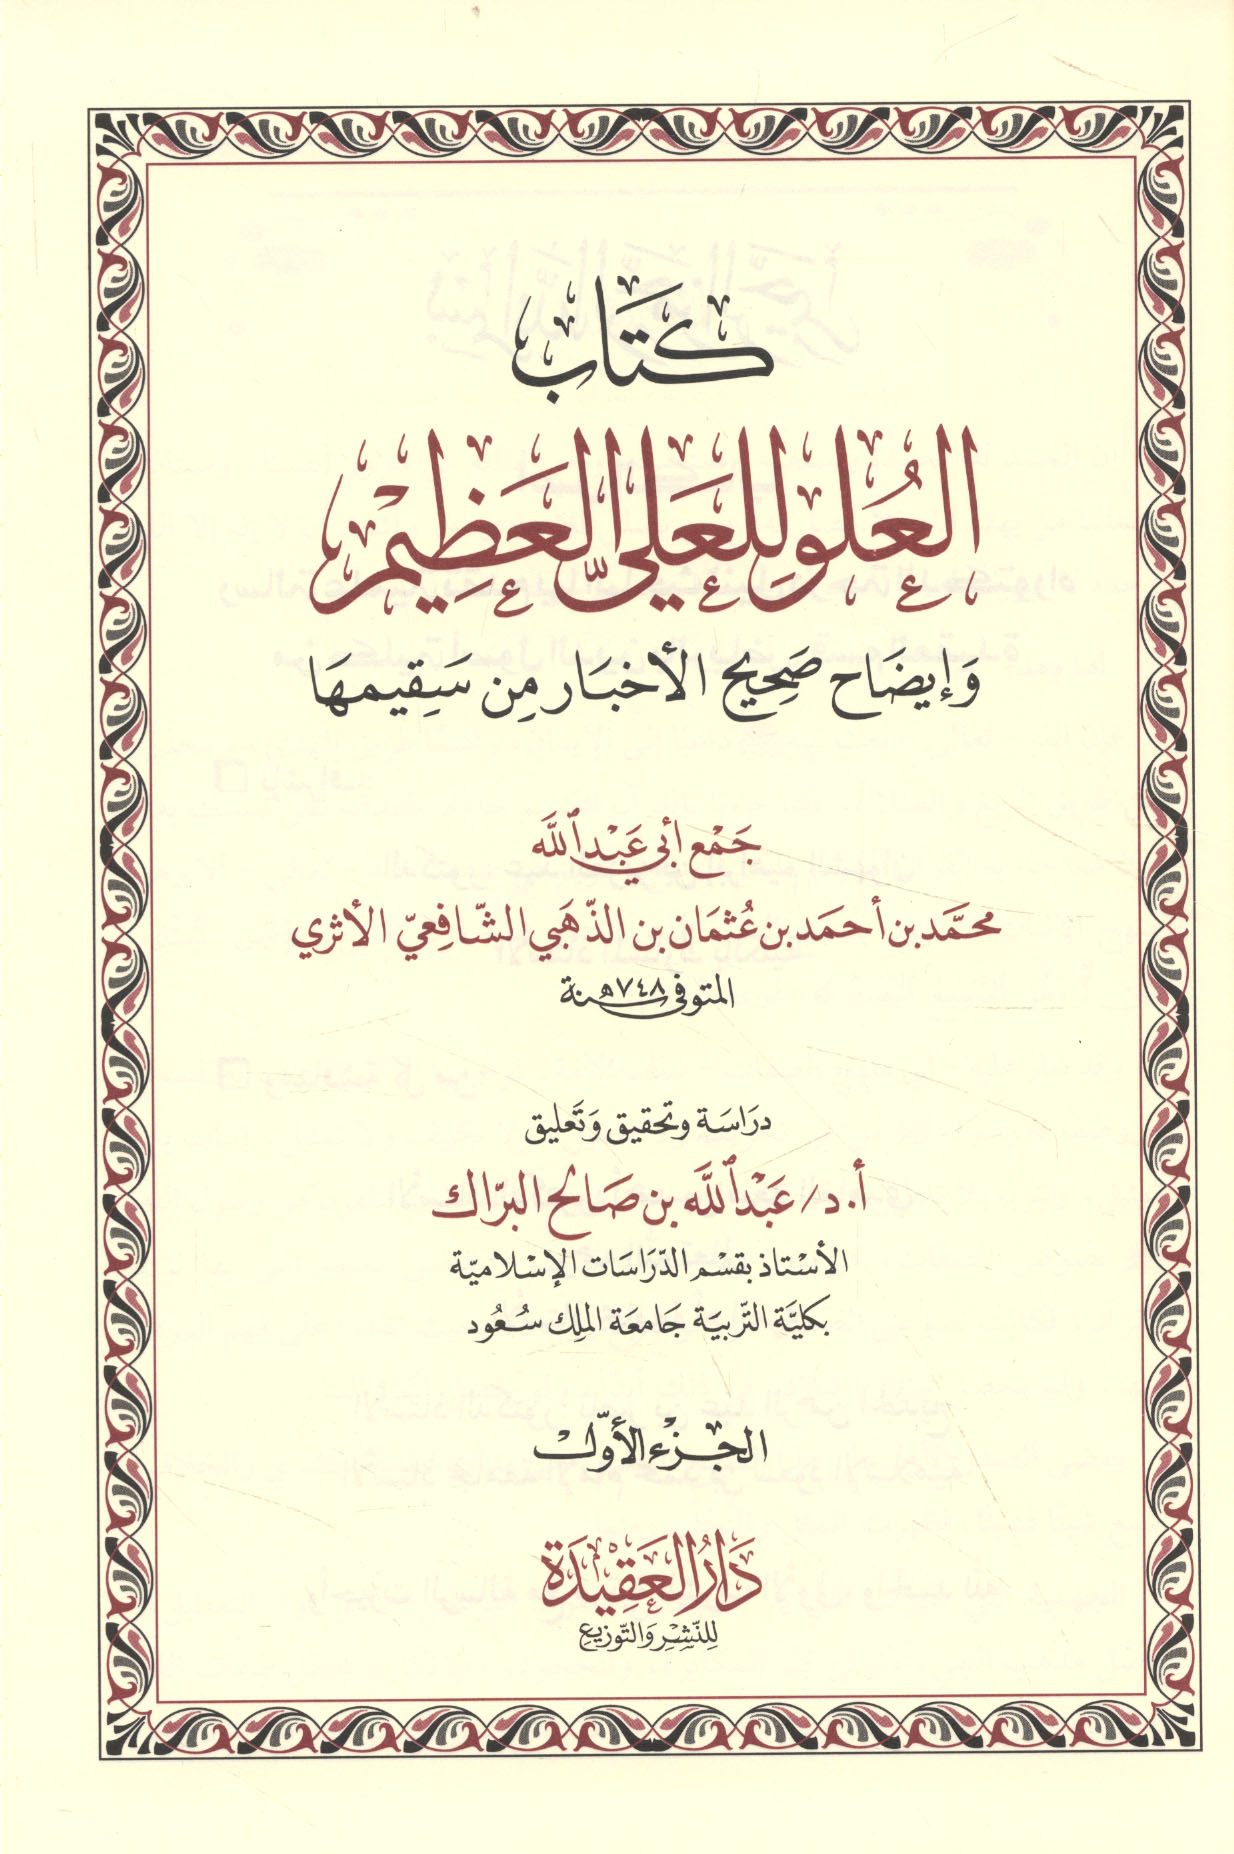 كتاب
العلو للعلي العظيم
وإيضاح صحيح الأخبار من سقيمها
جمع أبي عبد الله
محمد بن أحمد بن عثمان بن الذهبي الشافعي الأثري
المتوفى سنة ٧٤٨هـ
دراسة وتحقيق وتعليق
أ. د/ عبد الله بن صالح البراك
الأستاذ بقسم الدراسات الإسلامية
بكلية التربية جامعة الملك سعود
الجزء الأول
دار العقيدة
للنشر والتوزيع